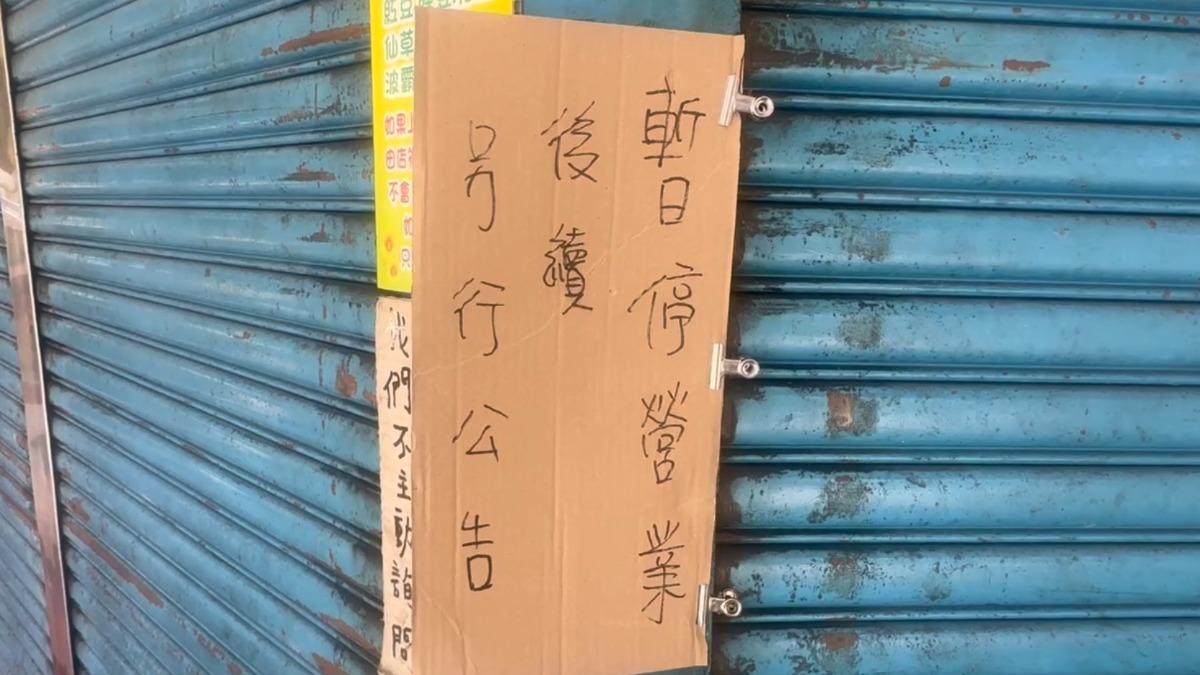 暫停營業
後續
另行公告
仙草
波霸
如果
不會
如
只
我們不主動詢問